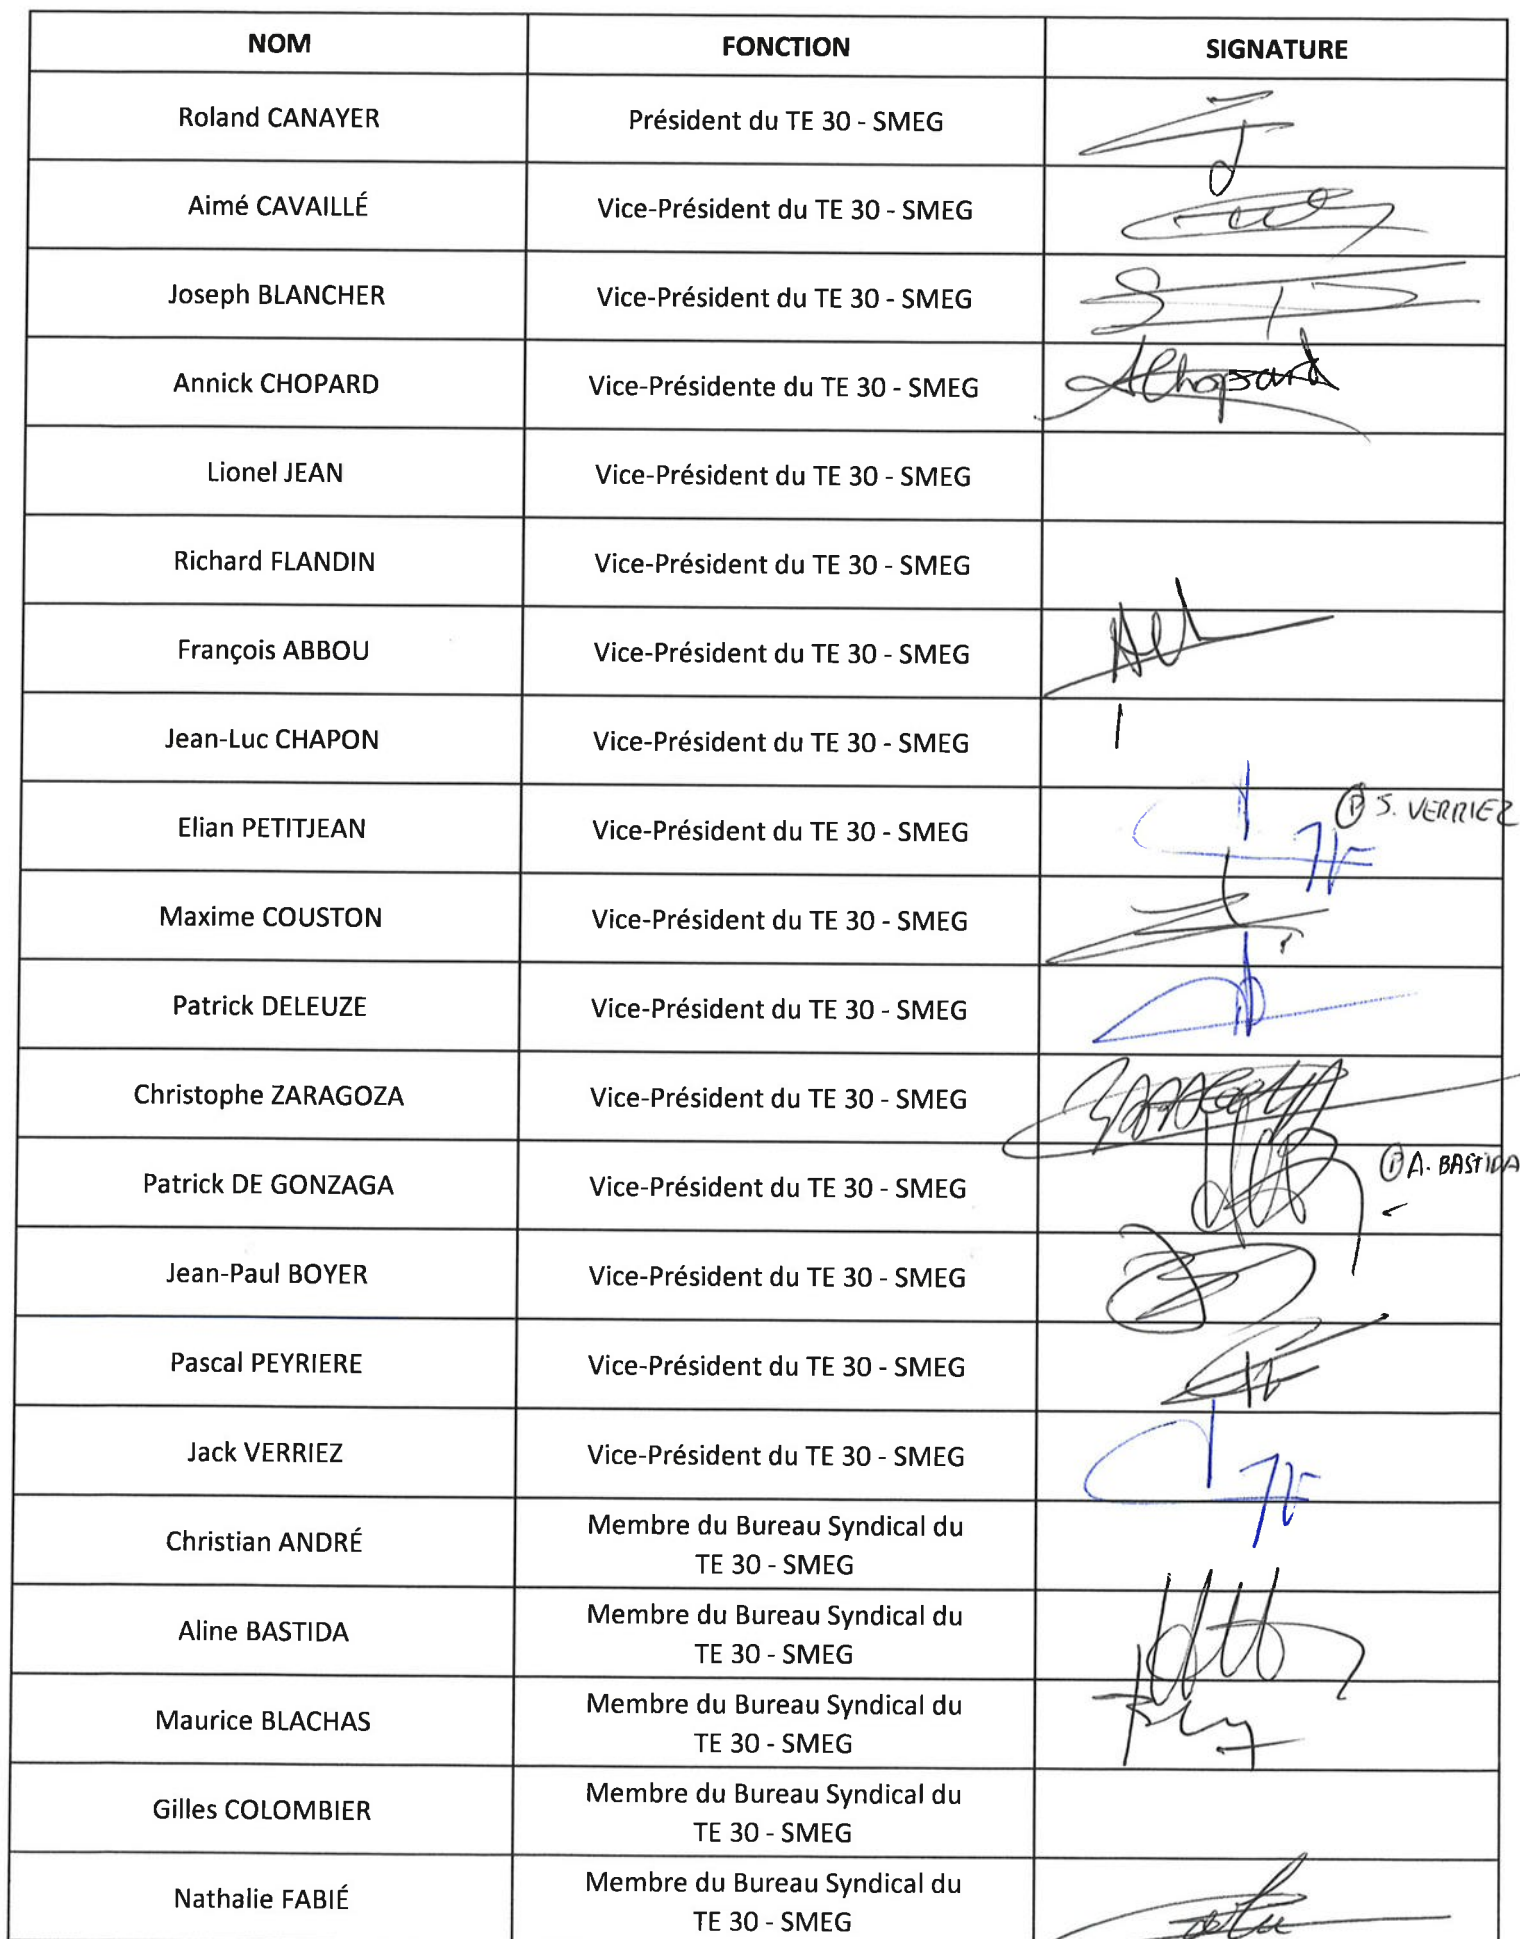 NOM FONCTION SIGNATURE
Roland CANAYER Président du TE 30 - SMEG
Aimé CAVAILLÉ Vice-Président du TE 30 - SMEG
Joseph BLANCHER Vice-Président du TE 30 - SMEG
Annick CHOPARD Vice-Présidente du TE 30 - SMEG AChopard
Lionel JEAN Vice-Président du TE 30 - SMEG
Richard FLANDIN Vice-Président du TE 30 - SMEG
François ABBOU Vice-Président du TE 30 - SMEG
Jean-Luc CHAPON Vice-Président du TE 30 - SMEG
Elian PETITJEAN Vice-Président du TE 30 - SMEG Ⓟ J. VERRIEZ
Maxime COUSTON Vice-Président du TE 30 - SMEG
Patrick DELEUZE Vice-Président du TE 30 - SMEG
Christophe ZARAGOZA Vice-Président du TE 30 - SMEG
Patrick DE GONZAGA Vice-Président du TE 30 - SMEG Ⓟ A. BASTIDA
Jean-Paul BOYER Vice-Président du TE 30 - SMEG
Pascal PEYRIERE Vice-Président du TE 30 - SMEG
Jack VERRIEZ Vice-Président du TE 30 - SMEG
Christian ANDRÉ Membre du Bureau Syndical du
TE 30 - SMEG
Aline BASTIDA Membre du Bureau Syndical du
TE 30 - SMEG
Maurice BLACHAS Membre du Bureau Syndical du
TE 30 - SMEG
Gilles COLOMBIER Membre du Bureau Syndical du
TE 30 - SMEG
Nathalie FABIÉ Membre du Bureau Syndical du
TE 30 - SMEG